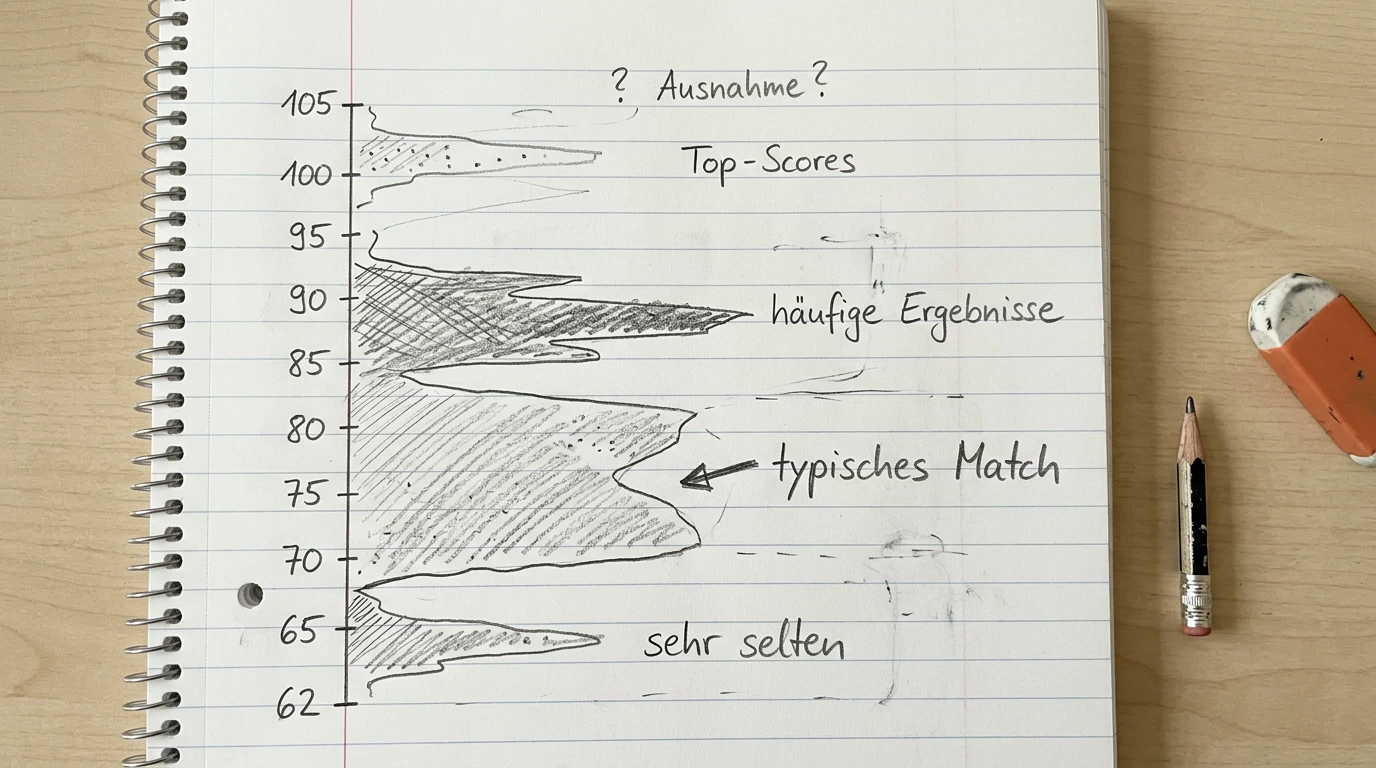 ? Ausnahme?
105
Top-Scores
100
95
90
häufige Ergebnisse
85
80
typisches Match
75
70
65
sehr selten
62